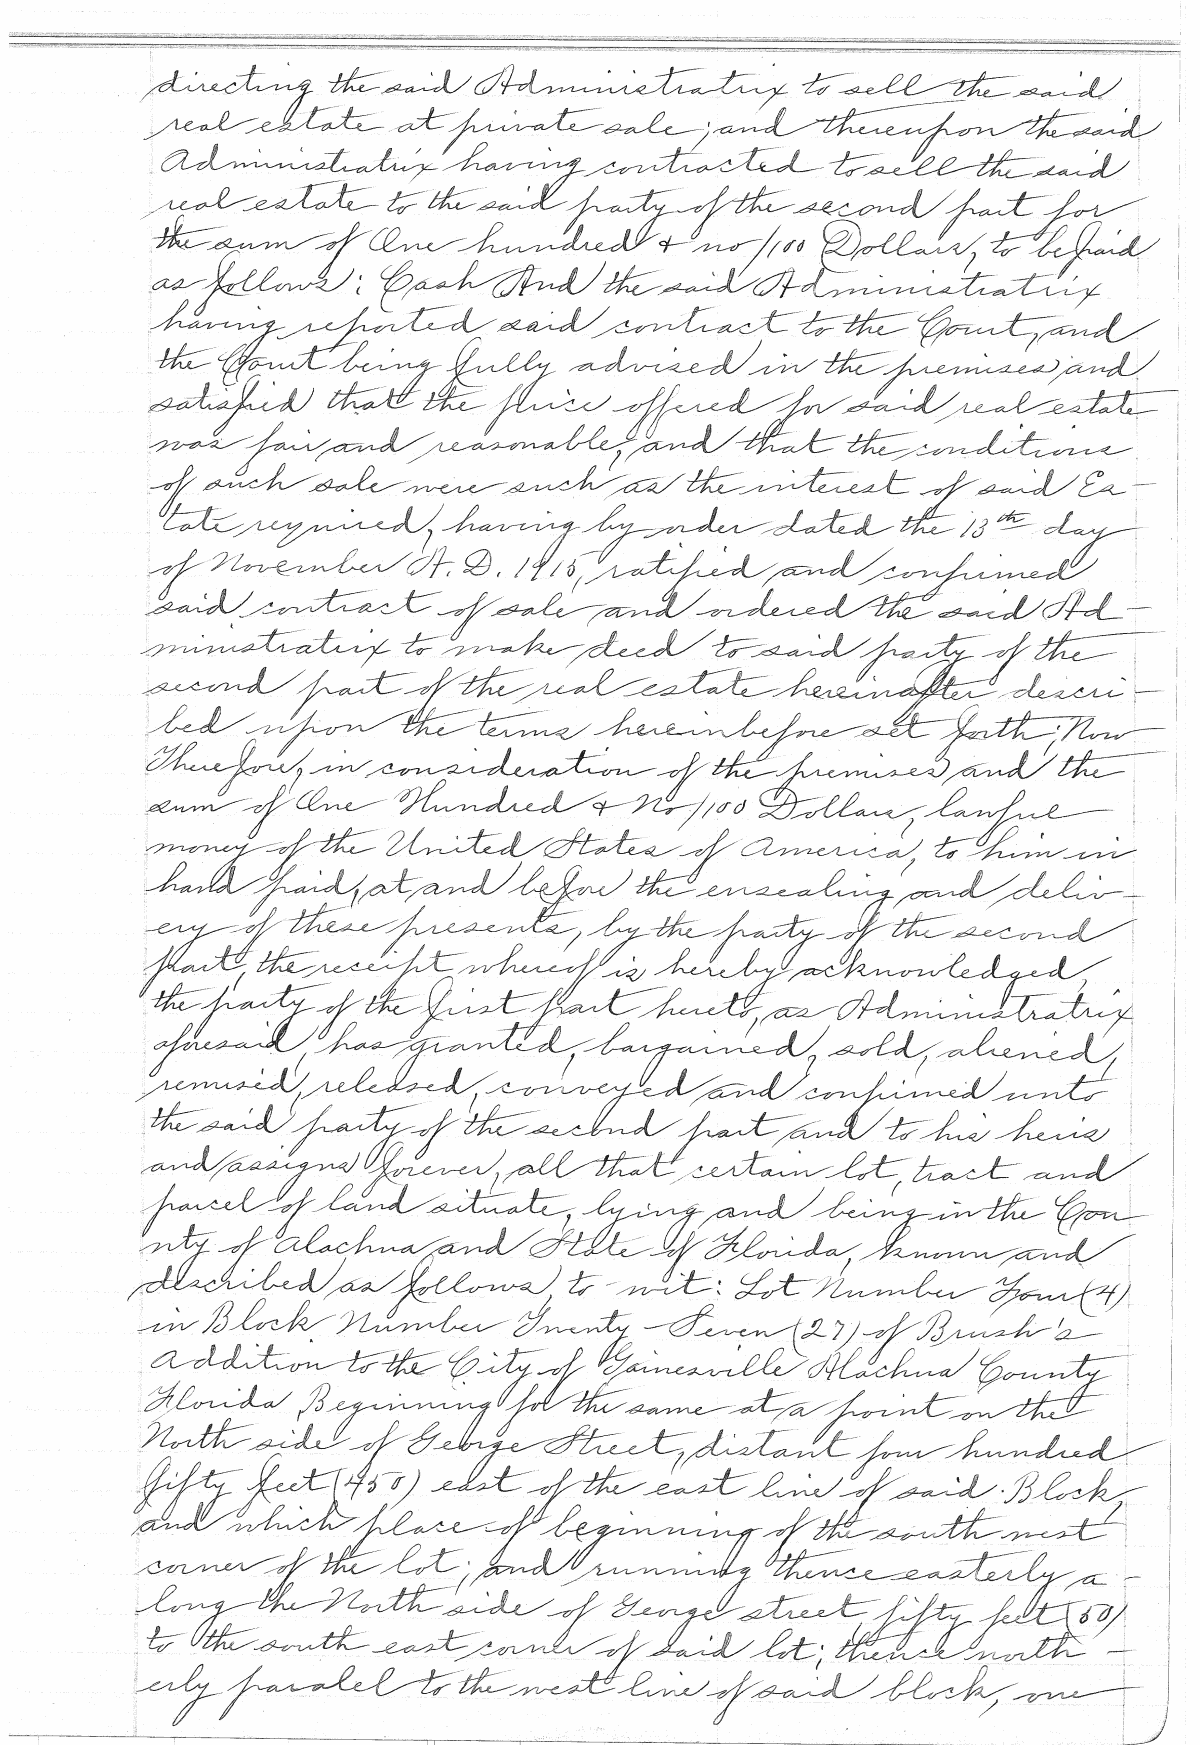 directing the said Administratrix to sell the said
real estate at private sale; and thereupon the said
Administratrix having contracted to sell the said
real estate to the said party of the second part for
the sum of One hundred & no/100 Dollars, to be paid
as follows: Cash And the said Administratrix
having reported said contract to the Court, and
the Court being fully advised in the premises and
satisfied that the price offered for said real estate
was fair and reasonable, and that the conditions
of such sale were such as the interest of said Es-
tate required, having by order dated the 13th day
of November A. D. 1915, ratified and confirmed
said contract of sale and ordered the said Ad-
ministratrix to make deed to said party of the
second part of the real estate hereinafter descri-
bed upon the terms hereinbefore set forth; Now
Therefore, in consideration of the premises and the
sum of One Hundred & No/100 Dollars, lawful
money of the United States of America, to him in
hand paid, at and before the ensealing and deliv-
ery of these presents, by the party of the second
part, the receipt whereof is hereby acknowledged,
the party of the first part hereto, as Administratrix
aforesaid, has granted, bargained, sold, aliened,
remised, released, conveyed and confirmed unto
the said party of the second part and to his heirs
and assigns forever, all that certain lot, tract and
parcel of land situate, lying and being in the Cou
nty of Alachua and State of Florida, known and
described as follows, to-wit: Lot Number Four (4)
in Block Number Twenty-Seven (27) of Brush's
Addition to the City of Gainesville Alachua County
Florida Beginning for the same at a point on the
North side of George Street, distant four hundred
fifty feet (450) east of the east line of said Block,
and which place of beginning of the south west
corner of the lot; and running thence easterly a-
long the North side of George street, fifty feet (50)
to the south east corner of said lot; thence north-
erly paralel to the west line of said block, one